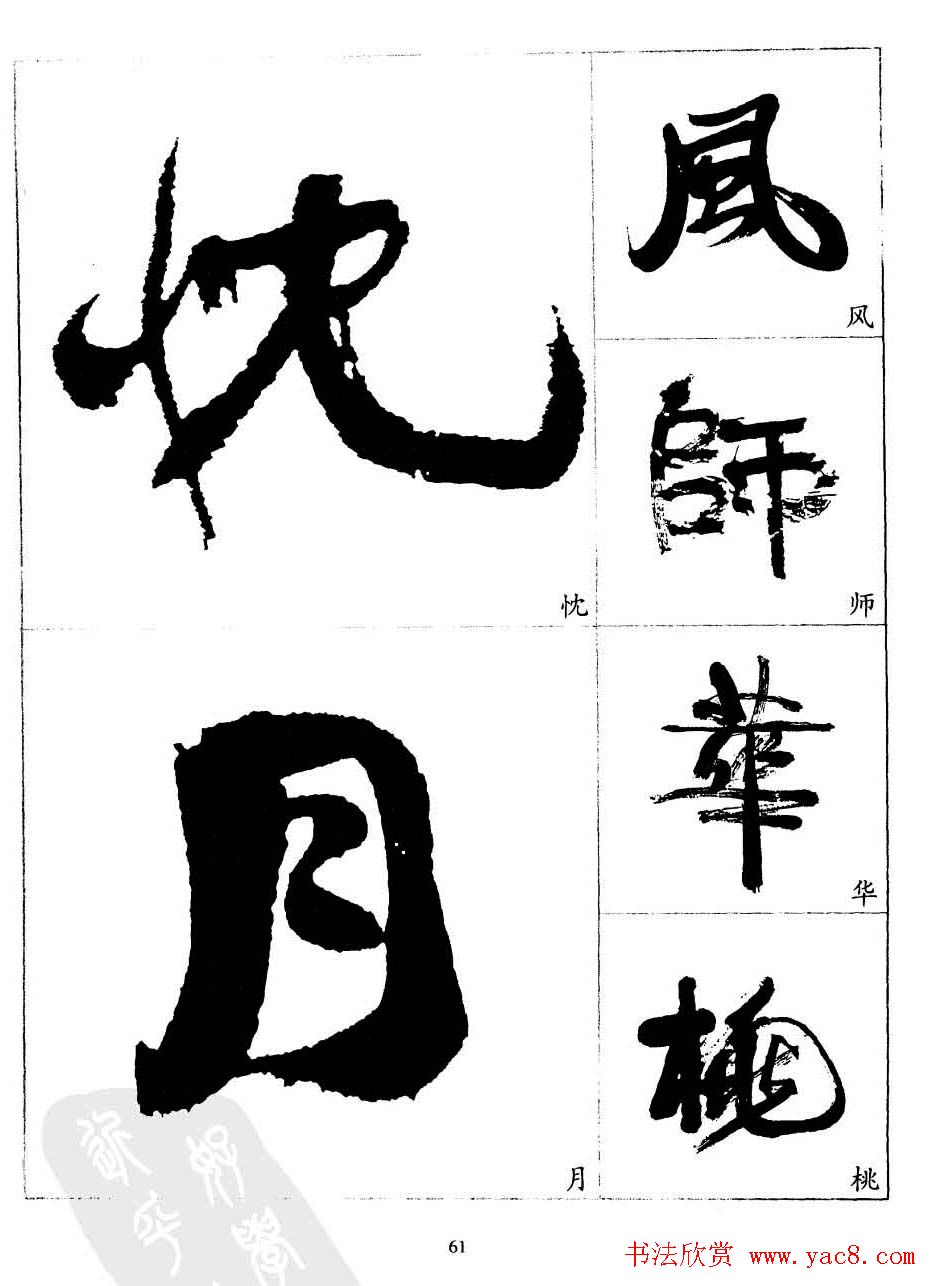 忱
忱
月
月
風
风
師
师
華
华
桃
桃
61
书法欣赏 www.yac8.com